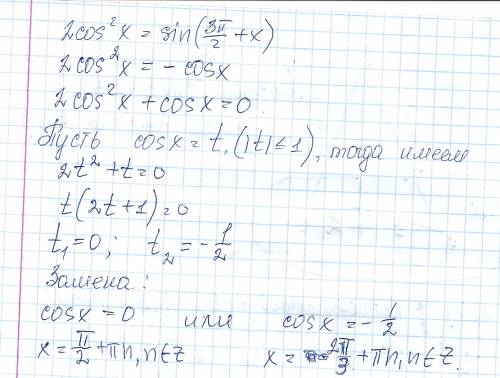 2cos²x = sin(3π/2 + x)
2cos²x = - cosx
2cos²x + cosx = 0
Пусть cosx = t, (|t| ≤ 1), тогда имеем
2t² + t = 0
t(2t + 1) = 0
t₁ = 0; t₂ = - 1/2
Замена:
cosx = 0 или cosx = - 1/2
x = π/2 + πn, n∈Z x = 2π/3 + πn, n∈Z.